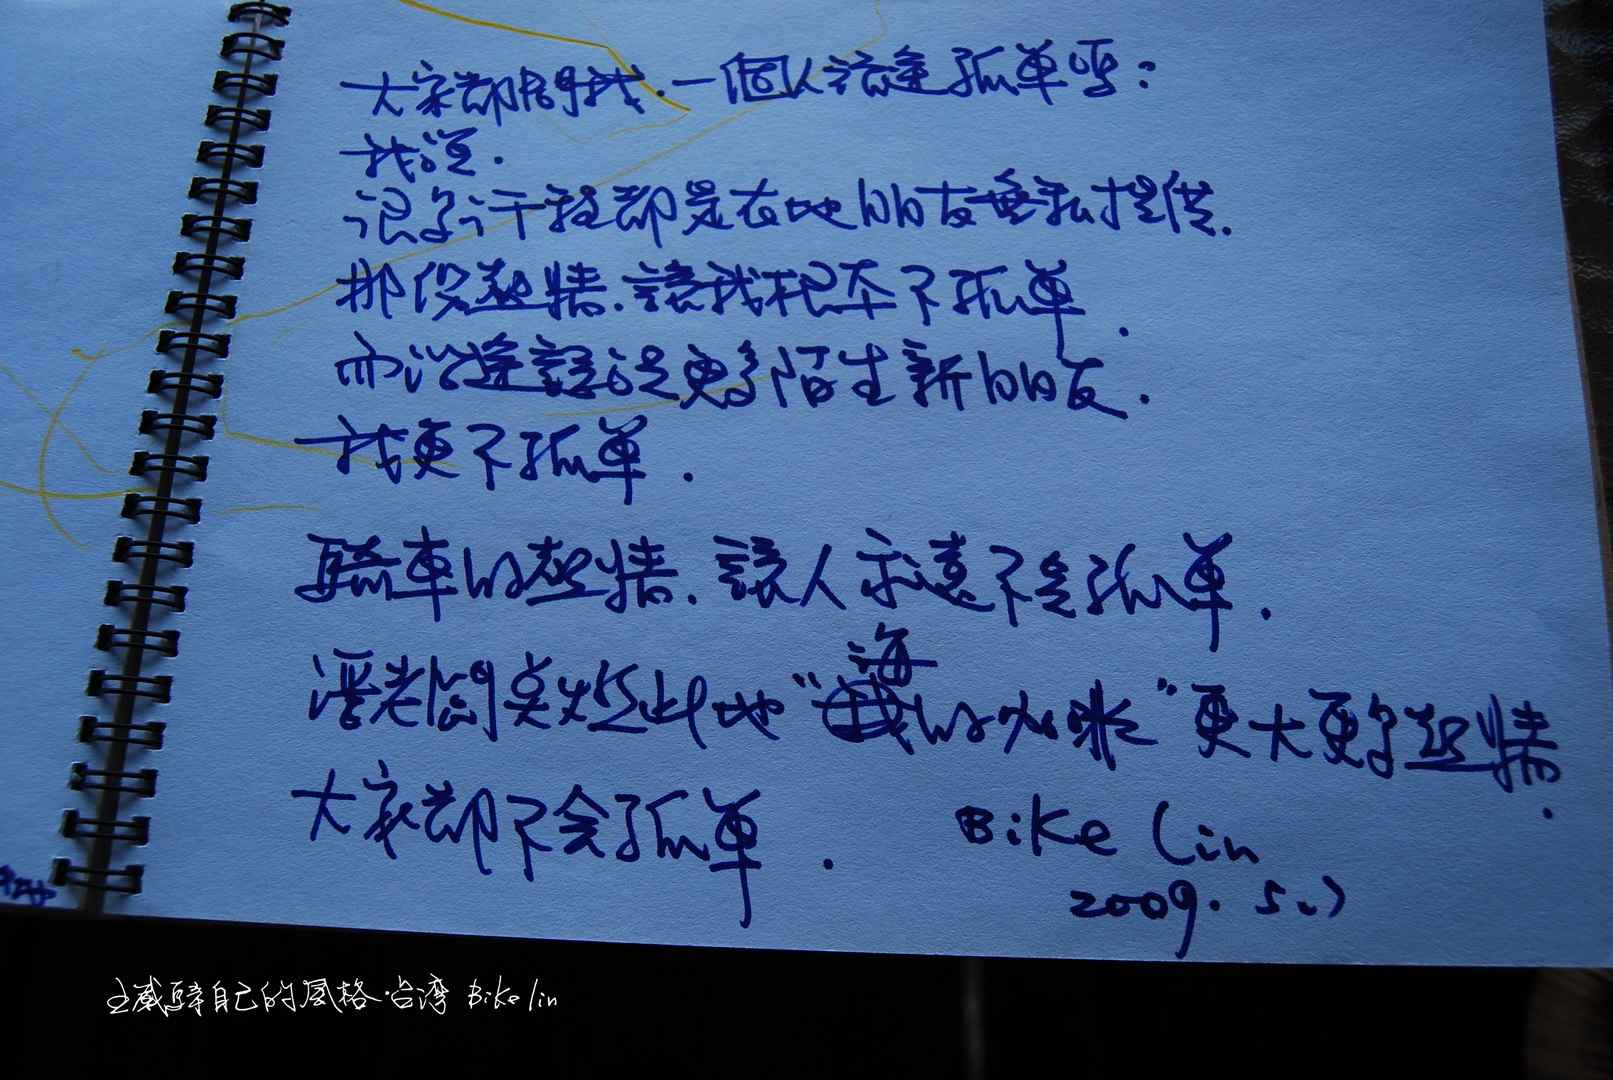 大家都問我.一個人詩走孤單嗎?
我說.
很多行程都是在地朋友無私提供.
那份熱情.讓我根本不孤單.
而沿途認識更多陌生新朋友.
我更不孤單.
騎車的熱情.讓人永遠不會孤單.
潘老闆 此地"海的咖啡"更大更多熱情.
大家都不會孤單.
Bike Lin
2009.5.7
騎自己的風格.台灣 Bike lin